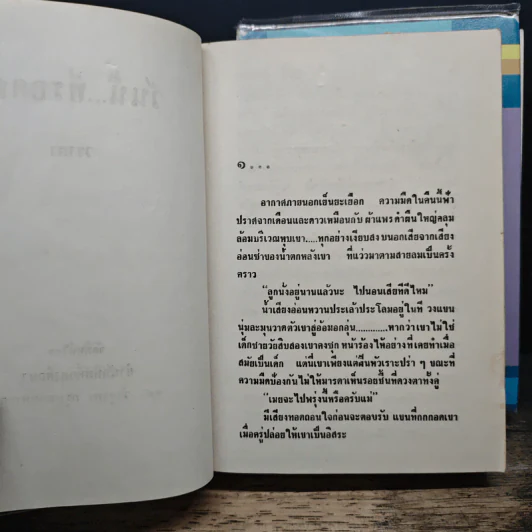 ๑...
อากาศภายนอกเย็นยะเยือก ความมืดในคืนนี้ที่ฟ้า
ปราศจากเดือนและดาวเหมือนกับ ผ้าแพรดำผืนใหญ่คลุม
ล้อมบริเวณหุบเขา.....ทุกอย่างเงียบสงบนอกเสียจากเสียง
อ่อนซ่าของน้ำตกหลังเขา ที่แว่วมาตามสายลมเป็นครั้ง
คราว
"ลูกนั่งอยู่นานแล้วนะ ไปนอนเสียทีดีไหม"
น้ำเสียงอ่อนหวานประเล้าประโลมอยู่ในที วงแขน
นุ่มละมุนวาดตัวเขาสู่อ้อมอกอุ่น.............หากว่าเขาไม่ใช่
เด็กชายวัยสิบสองเขาคงซุก หน้าร้องไห้อย่างที่เคยทำเมื่อ
สมัยเป็นเด็ก แต่นี่เขาเพียงแต่ฝืนหัวเราะปร่า ๆ ขณะที่
ความมืดป้องกันไม่ให้มารดาเห็นรอยชื้นที่ดวงตาทั้งคู่
"เมยจะไปพรุ่งนี้หรือครับแม่"
มีเสียงทอดถอนใจก่อนจะตอบรับ แขนที่กกกอดเขา
เมื่อครู่ปล่อยให้เขาเป็นอิสระ